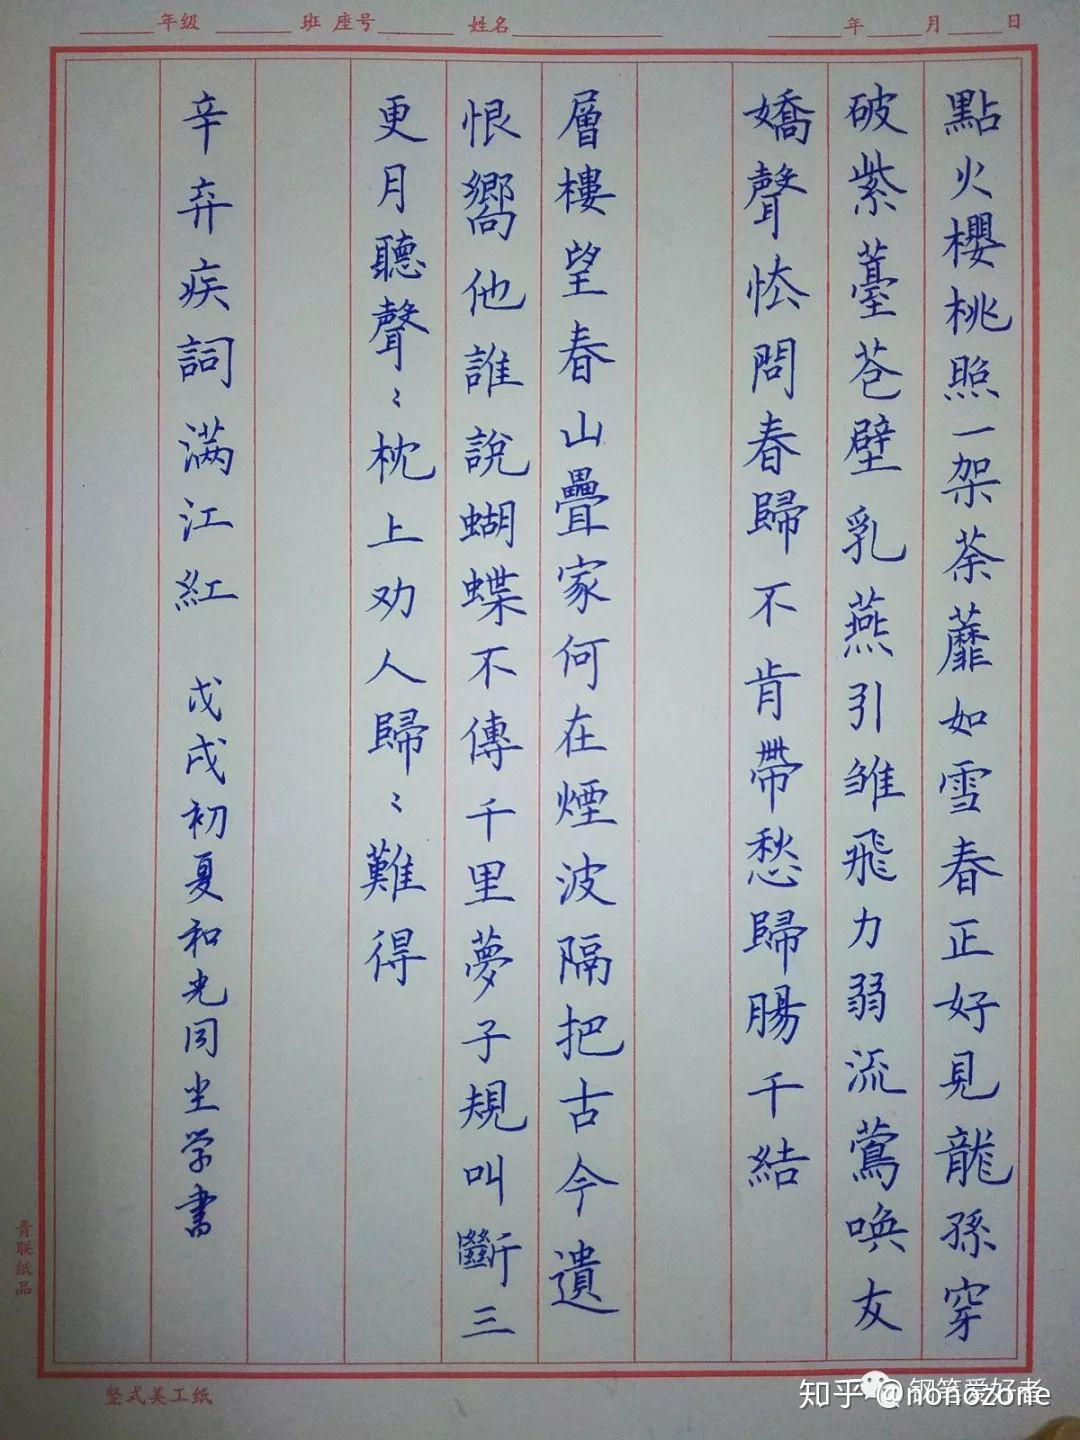 年级 班 座号 姓名 年 月 日
點火櫻桃照一架荼蘼如雪春正好見龍孫穿
破紫薹苍壁乳燕引雏飛力弱流鶯唤友
嬌聲怯問春歸不肯帶愁歸腸千結
層樓望春山疊家何在煙波隔把古今遺
恨嚮他誰說蝴蝶不傳千里夢子規叫斷三
更月聽聲〻枕上劝人歸〻難得
辛弃疾詞满江紅 戊戌初夏和光同尘学書
青联纸品
竖式美工纸
钢笔爱好者
知乎 @nonozone